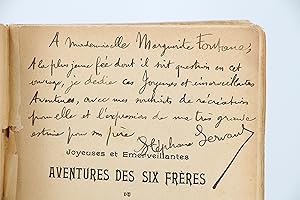 A Mademoiselle Marguerite Fontanes,
A la plus jeune fée dont il soit question en cet
ouvrage, je dédie ces Joyeuses et émerveillantes
Aventures, avec mes souhaits de récréation
pour elle et l'expression de ma très grande
estime pour son père
Stéphane Servant
Joyeuses et Emerveillantes
AVENTURES DES SIX FRÈRES